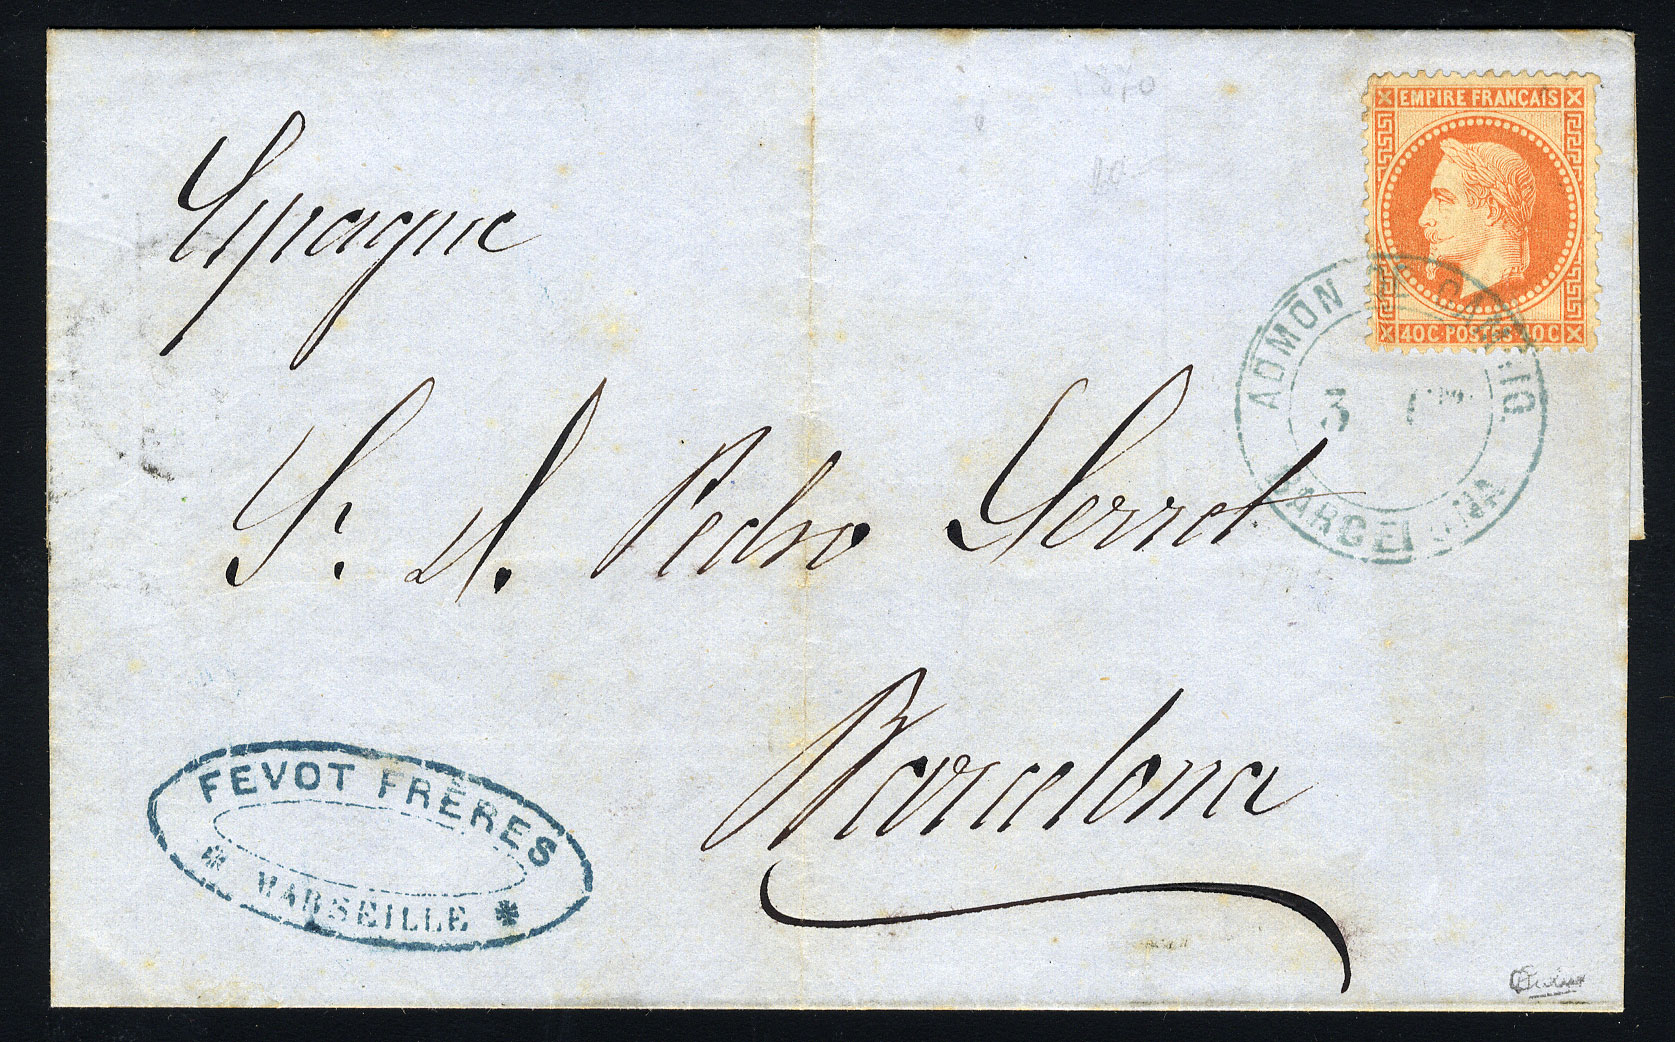 1870
Espagne
EMPIRE FRANÇAIS
40C·POSTES·40C
ADMON DE CAMBIO
3
BARCELONA
Sr. D. Pedro Serret
Barcelona
FEVOT FRÈRES
* MARSEILLE *